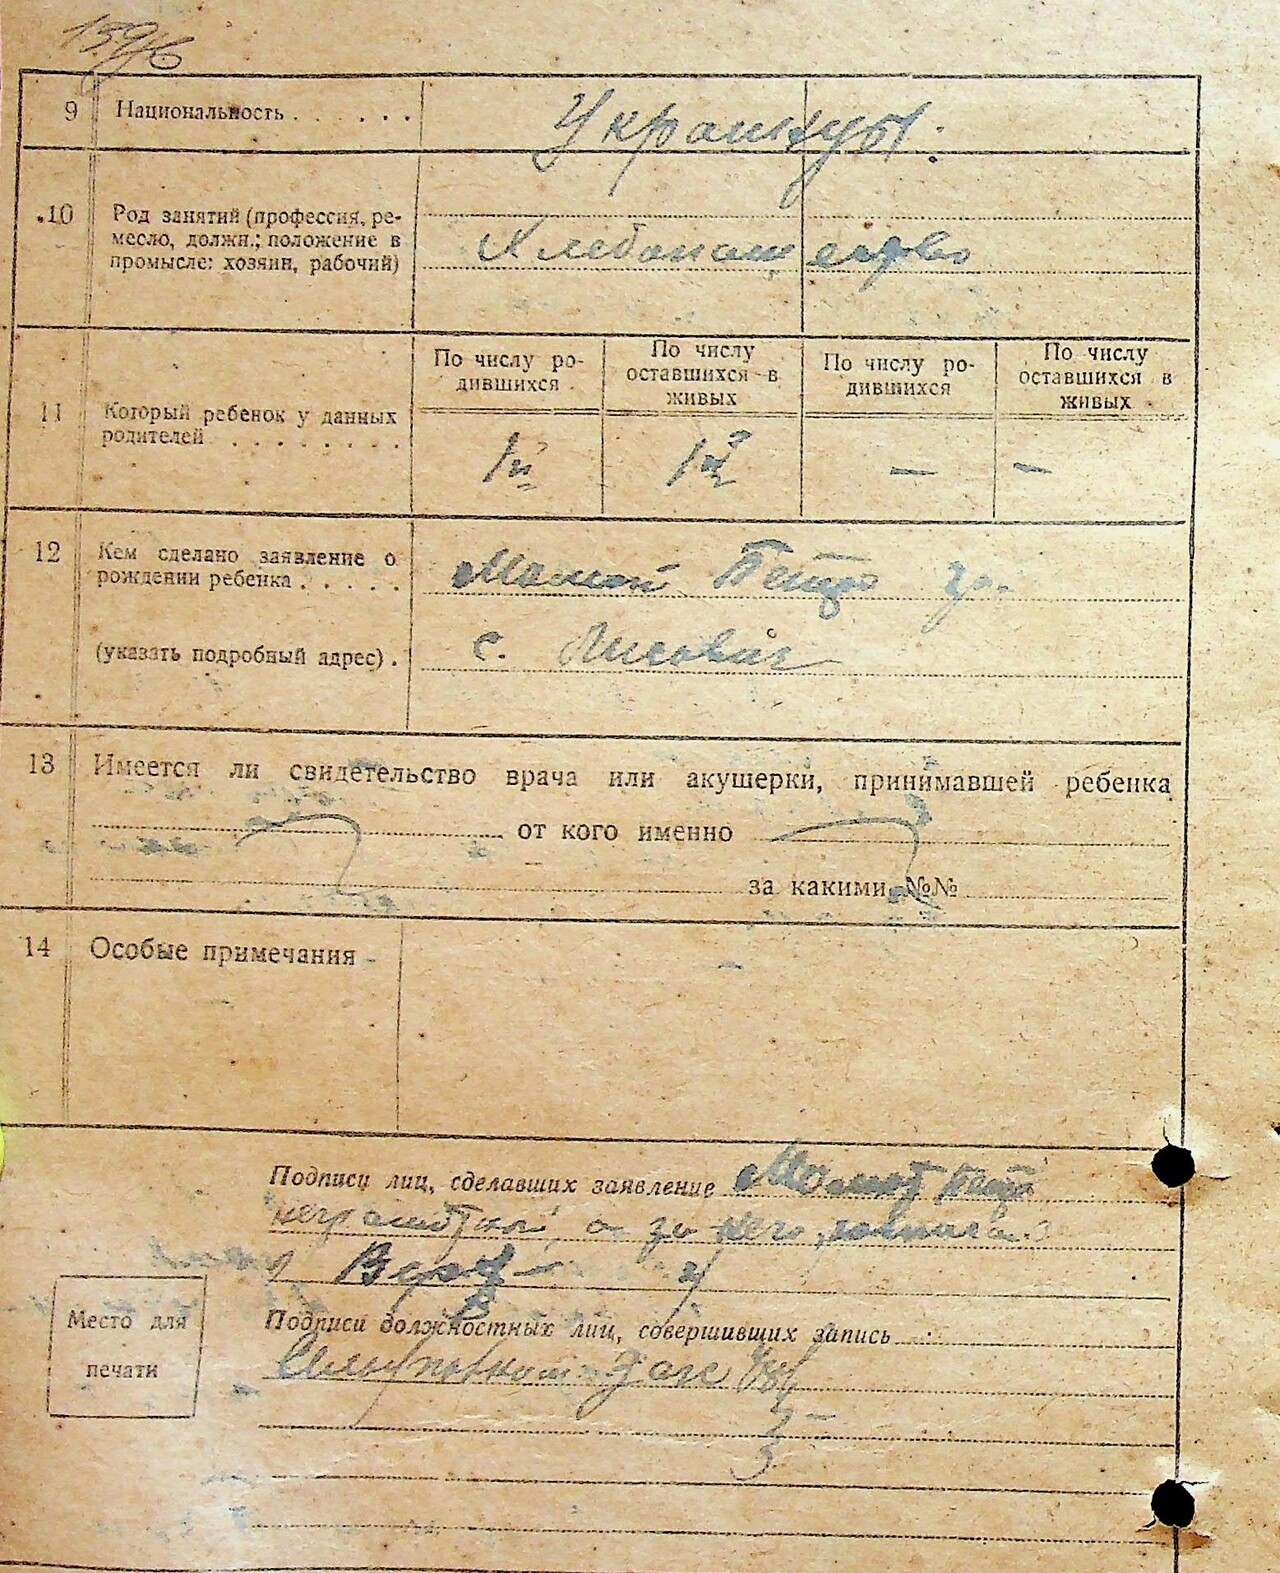 159
9 Национальность . . . . . .
Украинцы.
10 Род занятий (профессия, ре-
месло, должн.; положение в
промысле: хозяин, рабочий)
Хлебопашество
11 Который ребенок у данных
родителей . . . . . . . .
По числу ро-
дившихся
По числу
оставшихся в
живых
По числу ро-
дившихся
По числу
оставшихся в
живых
1й 1й — —
12 Кем сделано заявление о
рождении ребенка . . . . .
Петро
(указать подробный адрес) .
с.
13 Имеется ли свидетельство врача или акушерки, принимавшей ребенка
от кого именно
за какими №№
14 Особые примечания -
Подписи лиц, сделавших заявление
неграмотный, а за него
Место для
печати
Подписи должностных лиц, совершивших запись
Загс